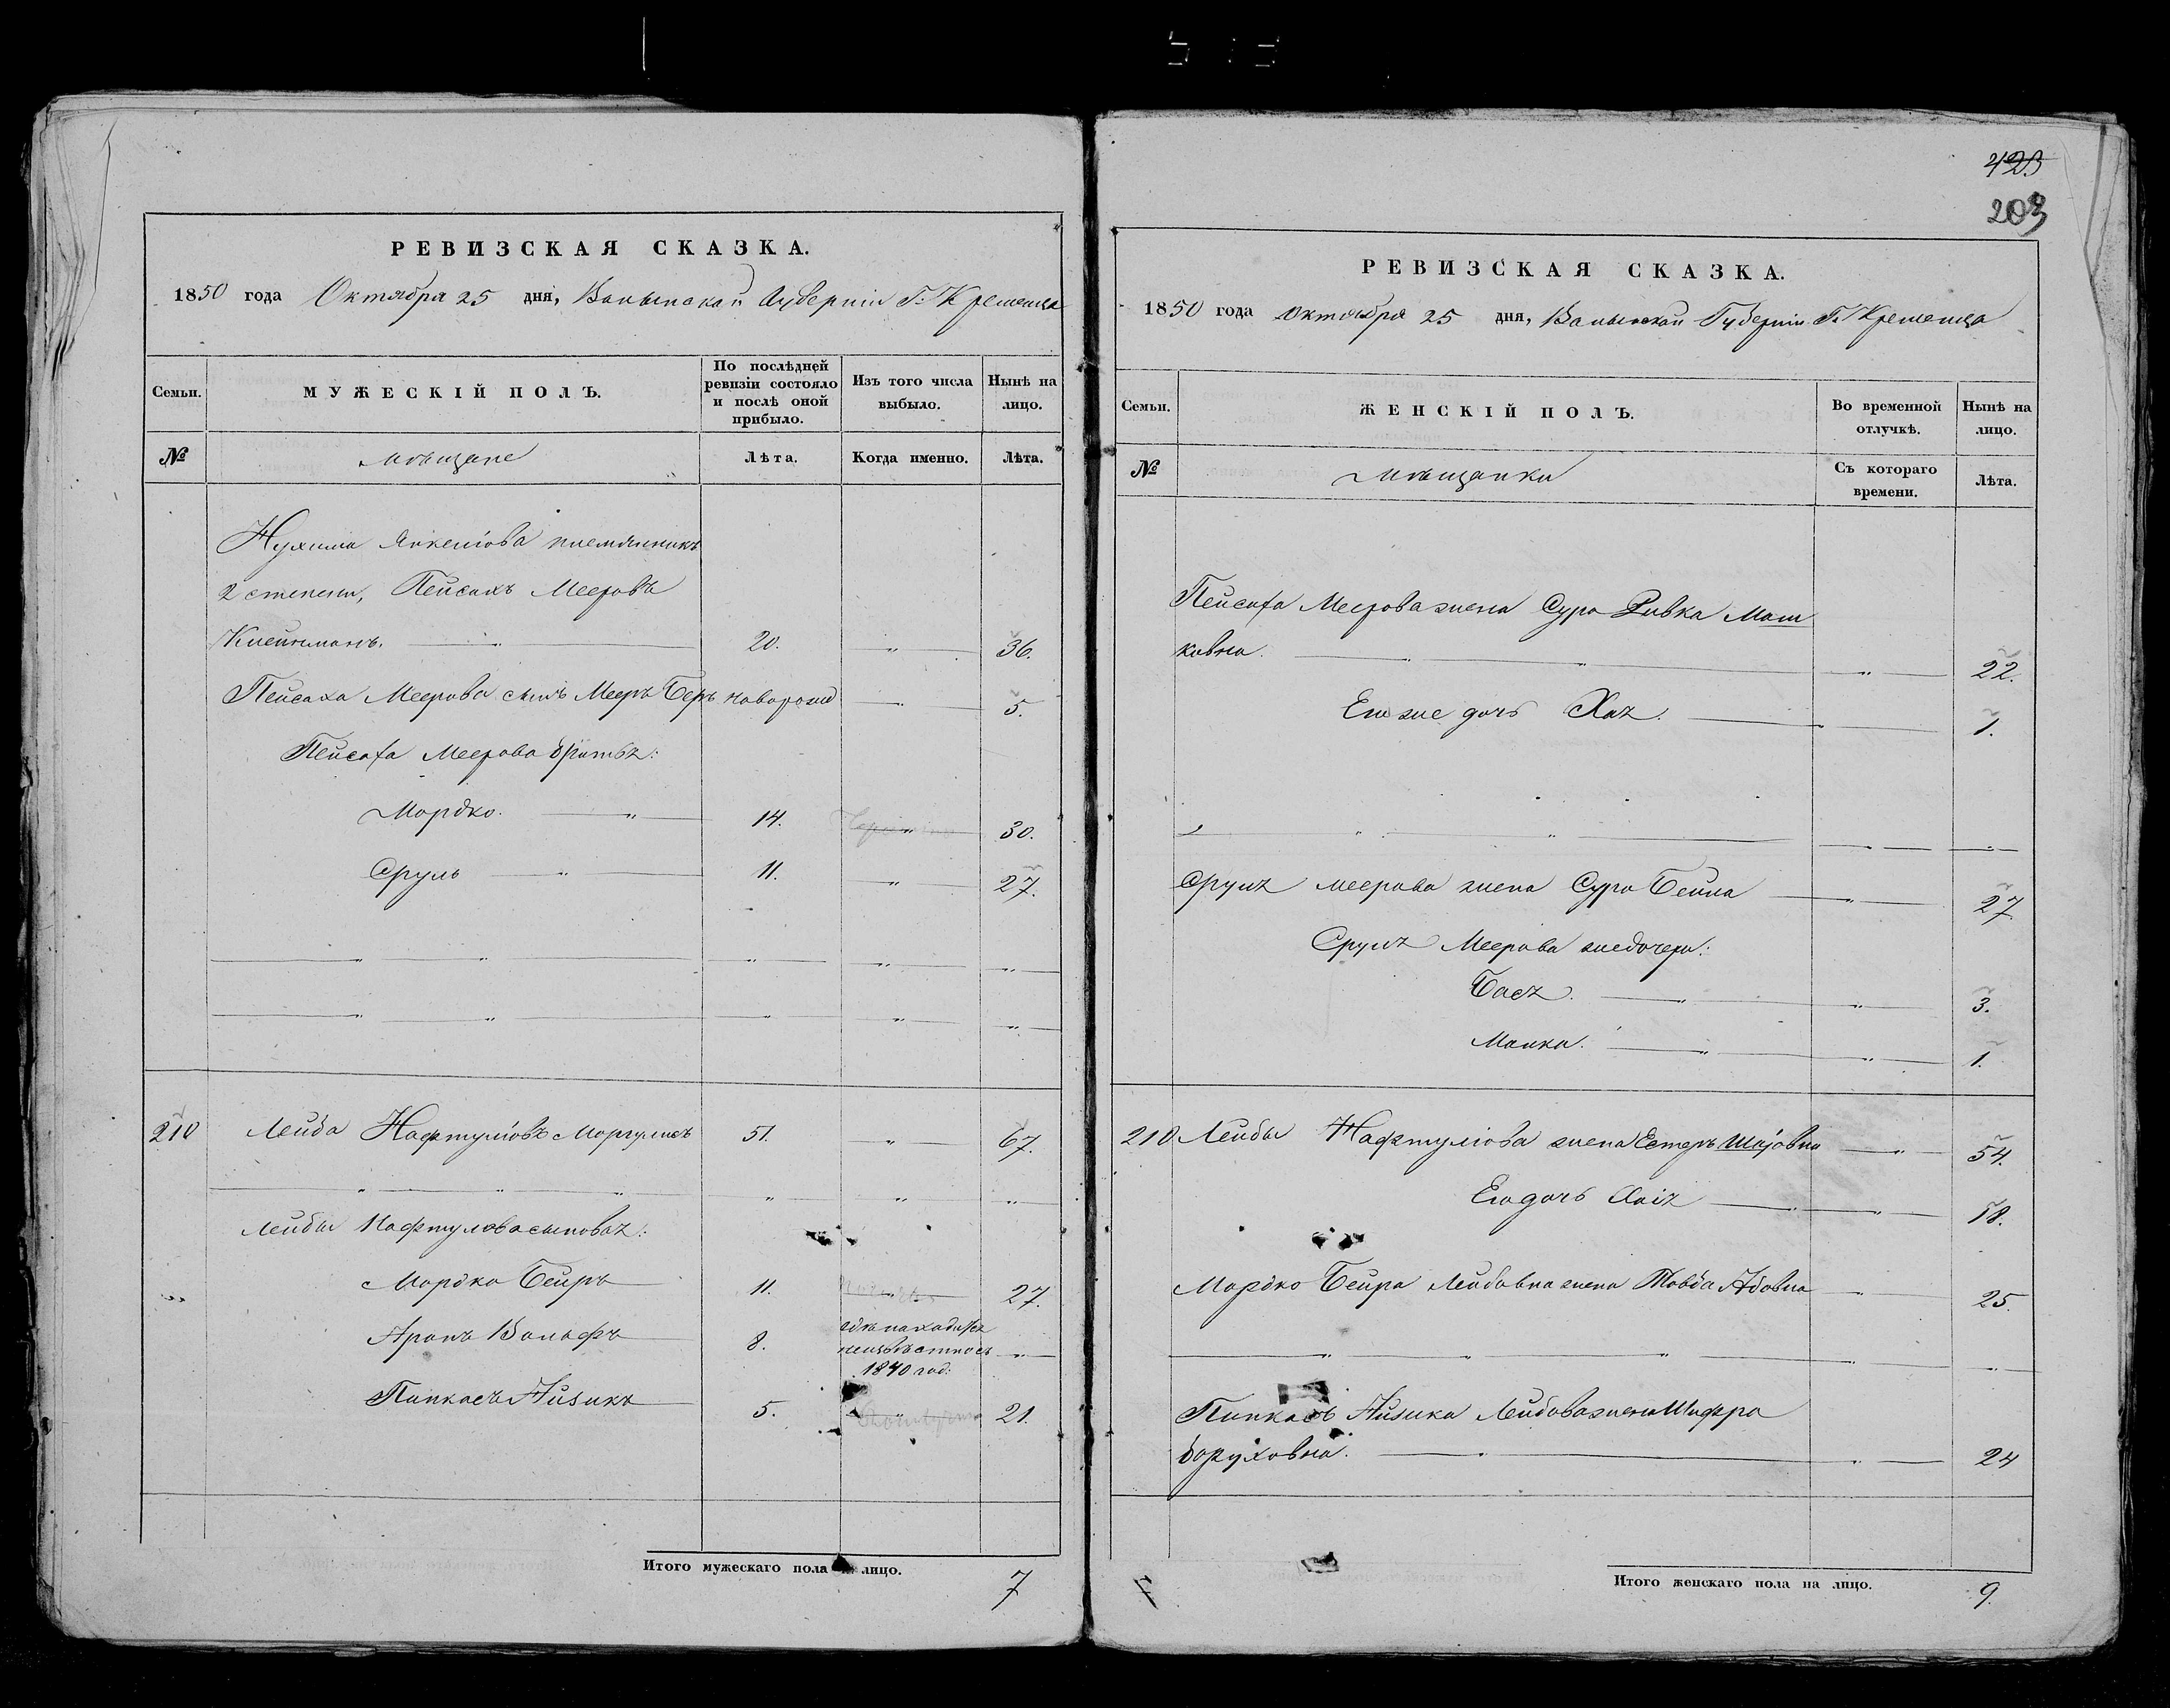 РЕВИЗСКАЯ СКАЗКА.
1850 года Октября 25 дня, Волынской Губерніи Г. Кременца
Семьи. МУЖЕСКІЙ ПОЛЪ. По послѣдней ревизіи состояло и послѣ оной прибыло. Изъ того числа выбыло. Нынѣ на лицо.
№ мѣщане Лѣта. Когда именно. Лѣта.
Нухима Янкеліова племянникъ
2 степени, Пейсахъ Мееровъ
Клейнманъ. 20. " 36.
Пейсаха Меерова сынъ Мееръ Беръ новорожд " 5.
Пейсаха Меерова братья:
Мордко. 14. " 30.
Сруль 11. " 27.
210 Лейба Нафтуліовъ Моргулисъ 51. " 67.
Лейбы Нафтулова сыновья:
Мордко Беиръ 11. " 27.
Аронъ Вольфъ 8. гдѣ находится "
неизвѣстно съ
1840 год:
Пинкасъ Айзикъ 5. " 21.
Итого мужескаго пола на лицо. 7
423
203
РЕВИЗСКАЯ СКАЗКА.
1850 года Октября 25 дня, Волынской Губерніи Г. Кременца
Семьи. ЖЕНСКІЙ ПОЛЪ. Во временной отлучкѣ. Нынѣ на лицо.
№ мѣщанки Съ котораго времени. Лѣта.
Пейсаха Меерова жена Сура Ривка Мош
ковна. " 22.
Его же дочь Хая. 1.
Сруля меерова жена Сура Бейла " 27
Сруля Меерова же дочери:
Бася. " 3.
Малка. " 1.
210 Лейбы Нафтуліова жена Естеръ Шаіовна " 54.
Его дочь Хаія " 18.
Мордко Беира Лейбовна жена Товба Абовна 25.
Пинкасъ Айзика Лейбова жена Шифра
Боруховна. " 24
7 Итого женскаго пола на лицо. 9.